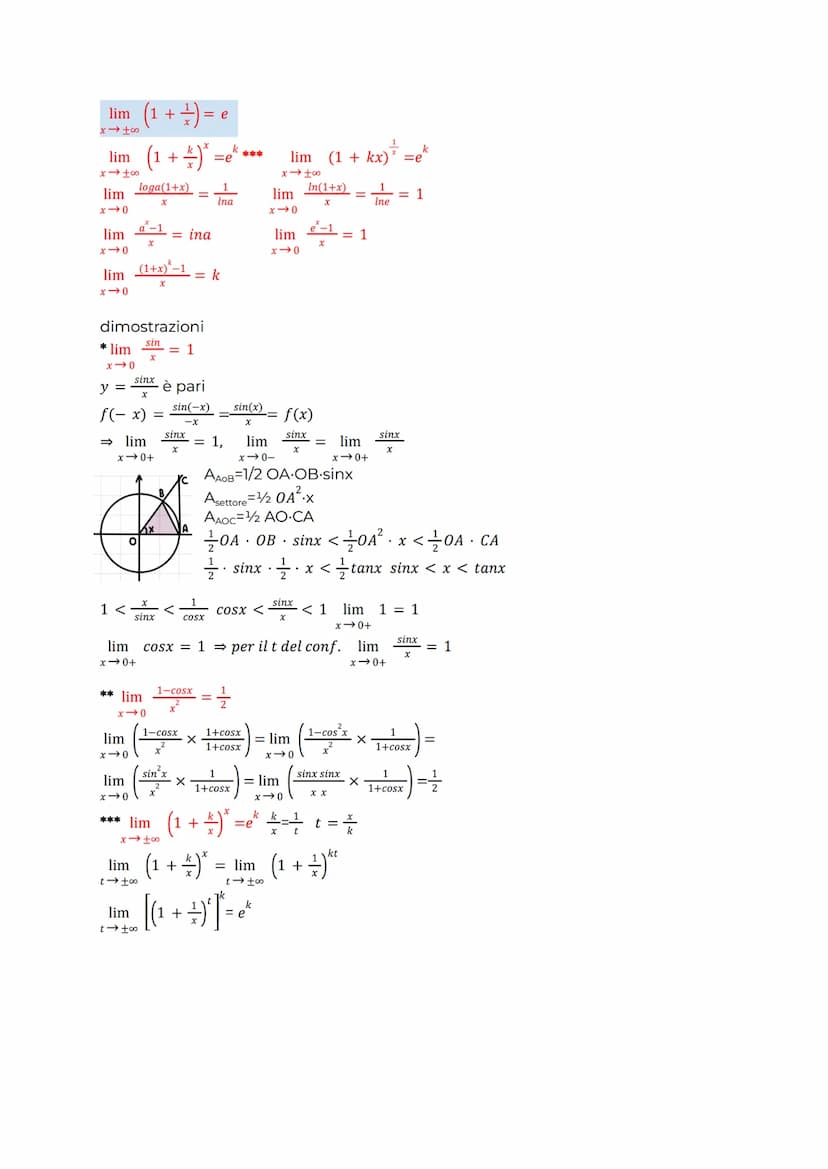 lim x→±∞ (1 + 1/x) = e
lim x→±∞ (1 + k/x)^x =e^k *** lim x→±∞ (1 + kx)^(1/x) =e^k
lim x→0 loga(1+x)/x = 1/lna lim x→0 ln(1+x)/x = 1/lne = 1
lim x→0 (a^x−1)/x = ina lim x→0 (e^x−1)/x = 1
lim x→0 ((1+x)^k−1)/x = k
dimostrazioni
* lim x→0 sin/x = 1
y = sinx/x è pari
f(− x) = sin(−x)/−x = sin(x)/x = f(x)
⇒ lim x→0+ sinx/x = 1, lim x→0− sinx/x = lim x→0+ sinx/x
C
B
x
A
O
A_AoB=1/2 OA·OB·sinx
A_settore=½ OA^2·x
A_AOC=½ AO·CA
1/2 OA · OB · sinx < 1/2 OA^2 · x < 1/2 OA · CA
1/2 · sinx · 1/2 · x < 1/2 tanx sinx < x < tanx
1 < x/sinx < 1/cosx cosx < sinx/x < 1 lim x→0+ 1 = 1
lim x→0+ cosx = 1 ⇒ per il t del conf. lim x→0+ sinx/x = 1
** lim x→0 (1−cosx)/x^2 = 1/2
lim x→0 ((1−cosx)/x^2 × (1+cosx)/(1+cosx)) = lim x→0 ((1−cos^2x)/x^2 × 1/(1+cosx)) =
lim x→0 (sin^2x/x^2 × 1/(1+cosx)) = lim x→0 (sinx sinx/x x × 1/(1+cosx)) = 1/2
*** lim x→±∞ (1 + k/x)^x =e^k k/x = 1/t t = x/k
lim t→±∞ (1 + k/x)^x = lim t→±∞ (1 + 1/x)^kt
lim t→±∞ [(1 + 1/x)^t]^k = e^k